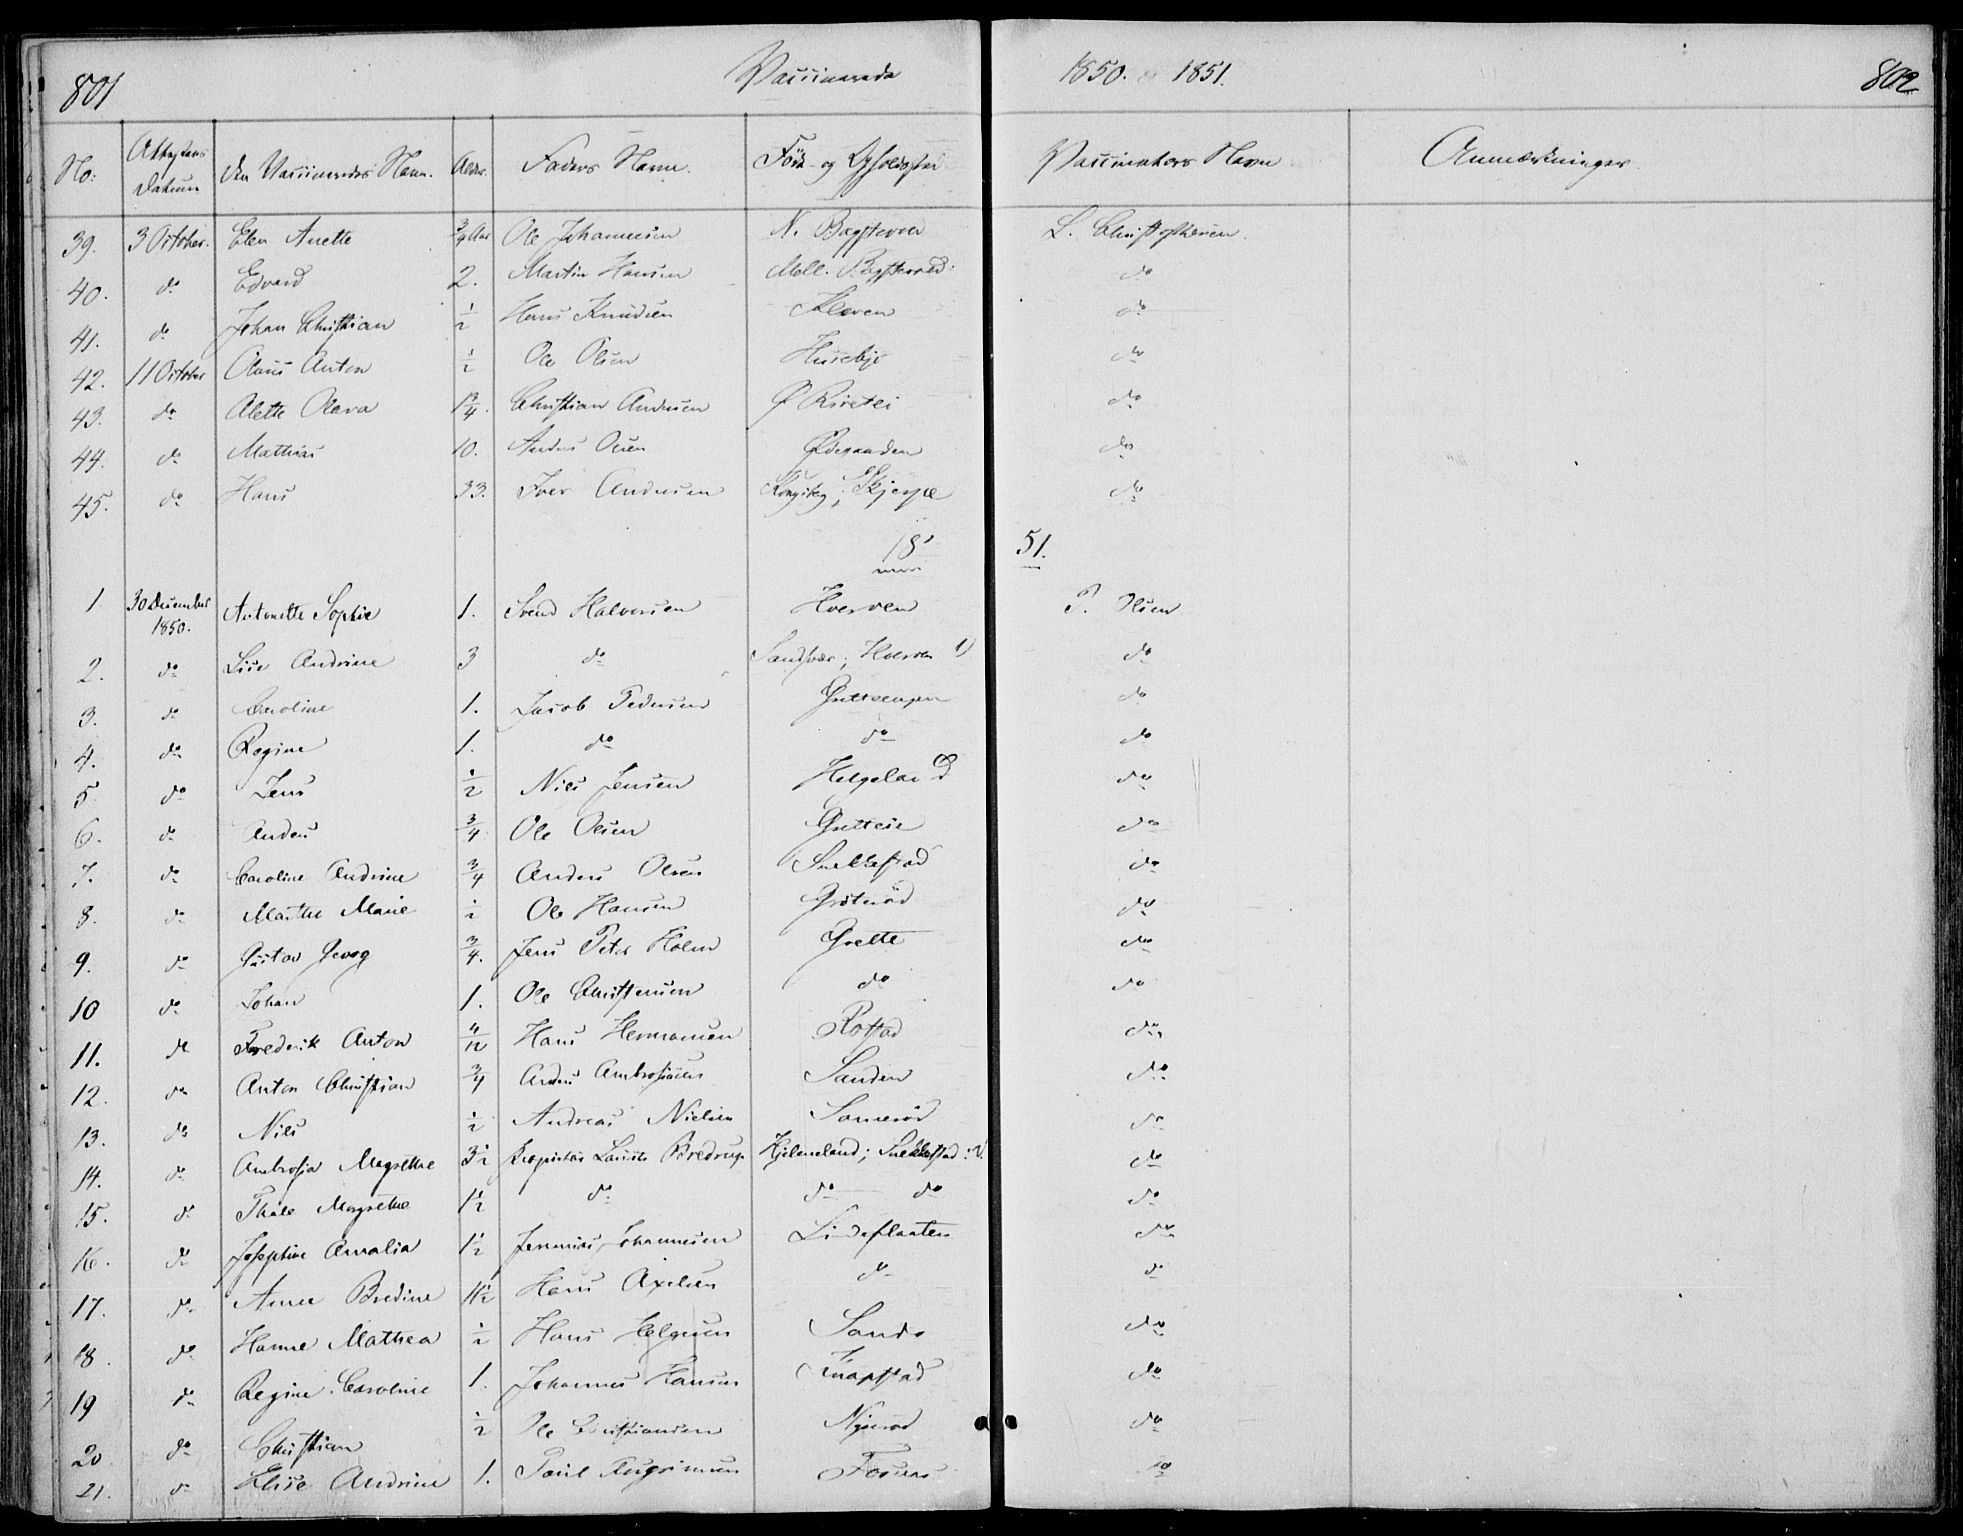 801 Vaccinerede 1850. og 1851. 802
No: Attestens Datum Den Vaccineredes Navn. Alder. Faders Navn. Føde- og Opholdssted Vaccinators Navn Anmærkninger
39. 3 October. Elen Anette 3/4 Aar Ole Johannesen N. Bagsterød L. Christophersen
40. do Edvard 2. Martin Hansen Mell. Bagsterød. do
41. do Johan Christian 1/2 Hans Knudsen Kleven do
42. 11 October Olaus Anton 1/2 Ole Olsen Husebye do
43. do Alette Olava 1 3/4. Christian Andersen Ø do
44. do Mathias 10. Anders Olsen Ødegaarden do
45. do Hans 33. Iver Andersen Kongsberg; do
18 51.
1 30 December 1850. Antonette Sophie 1. Svend Halvorsen Hverven P. Olsen
2. do Lise Andrine 3 do Sandsvær; Hverven do
3. do Caroline 1. Jacob Pedersen do
4. do Regine 1. do do do
5 do Jens 1/2 Niels Jensen Helgeland do
6. do Anders 3/4 Ole Olsen do
7. do Caroline Andrine 3/4 Anders Olsen Snekkestad do
8. do Marthe Marie 1/2 Ole Hansen Grøtnød do
9. do Gustav Georg 3/4. Jens Peter Holm Grette do
10 do Johan 1. Ole Christensen do do
11. do Frederik Anton 4/12 Hans Hermansen Rostad do
12. do Anton Christian 3/4 Anders Ambrosiusen Sanden do
13. do Nils 1/2 Andreas Nielsen Somerød do
14. do Ambrosia Magrethe 3 1/2 Proprietær Laurits Bredrup Hjelmeland; Snekkestad do
15. do Thale Magrethe 1 1/2 do do do do
16. do Josephine Amalia 1 1/2 Jeremias Johannesen Lindeflaaten do
17. do Anne Bredine 1 1/2 Hans Axelsen do do
18. do Hanne Mathea 1/2 Hans Helgesen Sande do
19 do Regine Caroline 1. Johannes Hansen Knapstad do
20 do Christian 1/2 Ole Christiansen Nyerød do
21. do Elise Andrine 1. Poul do